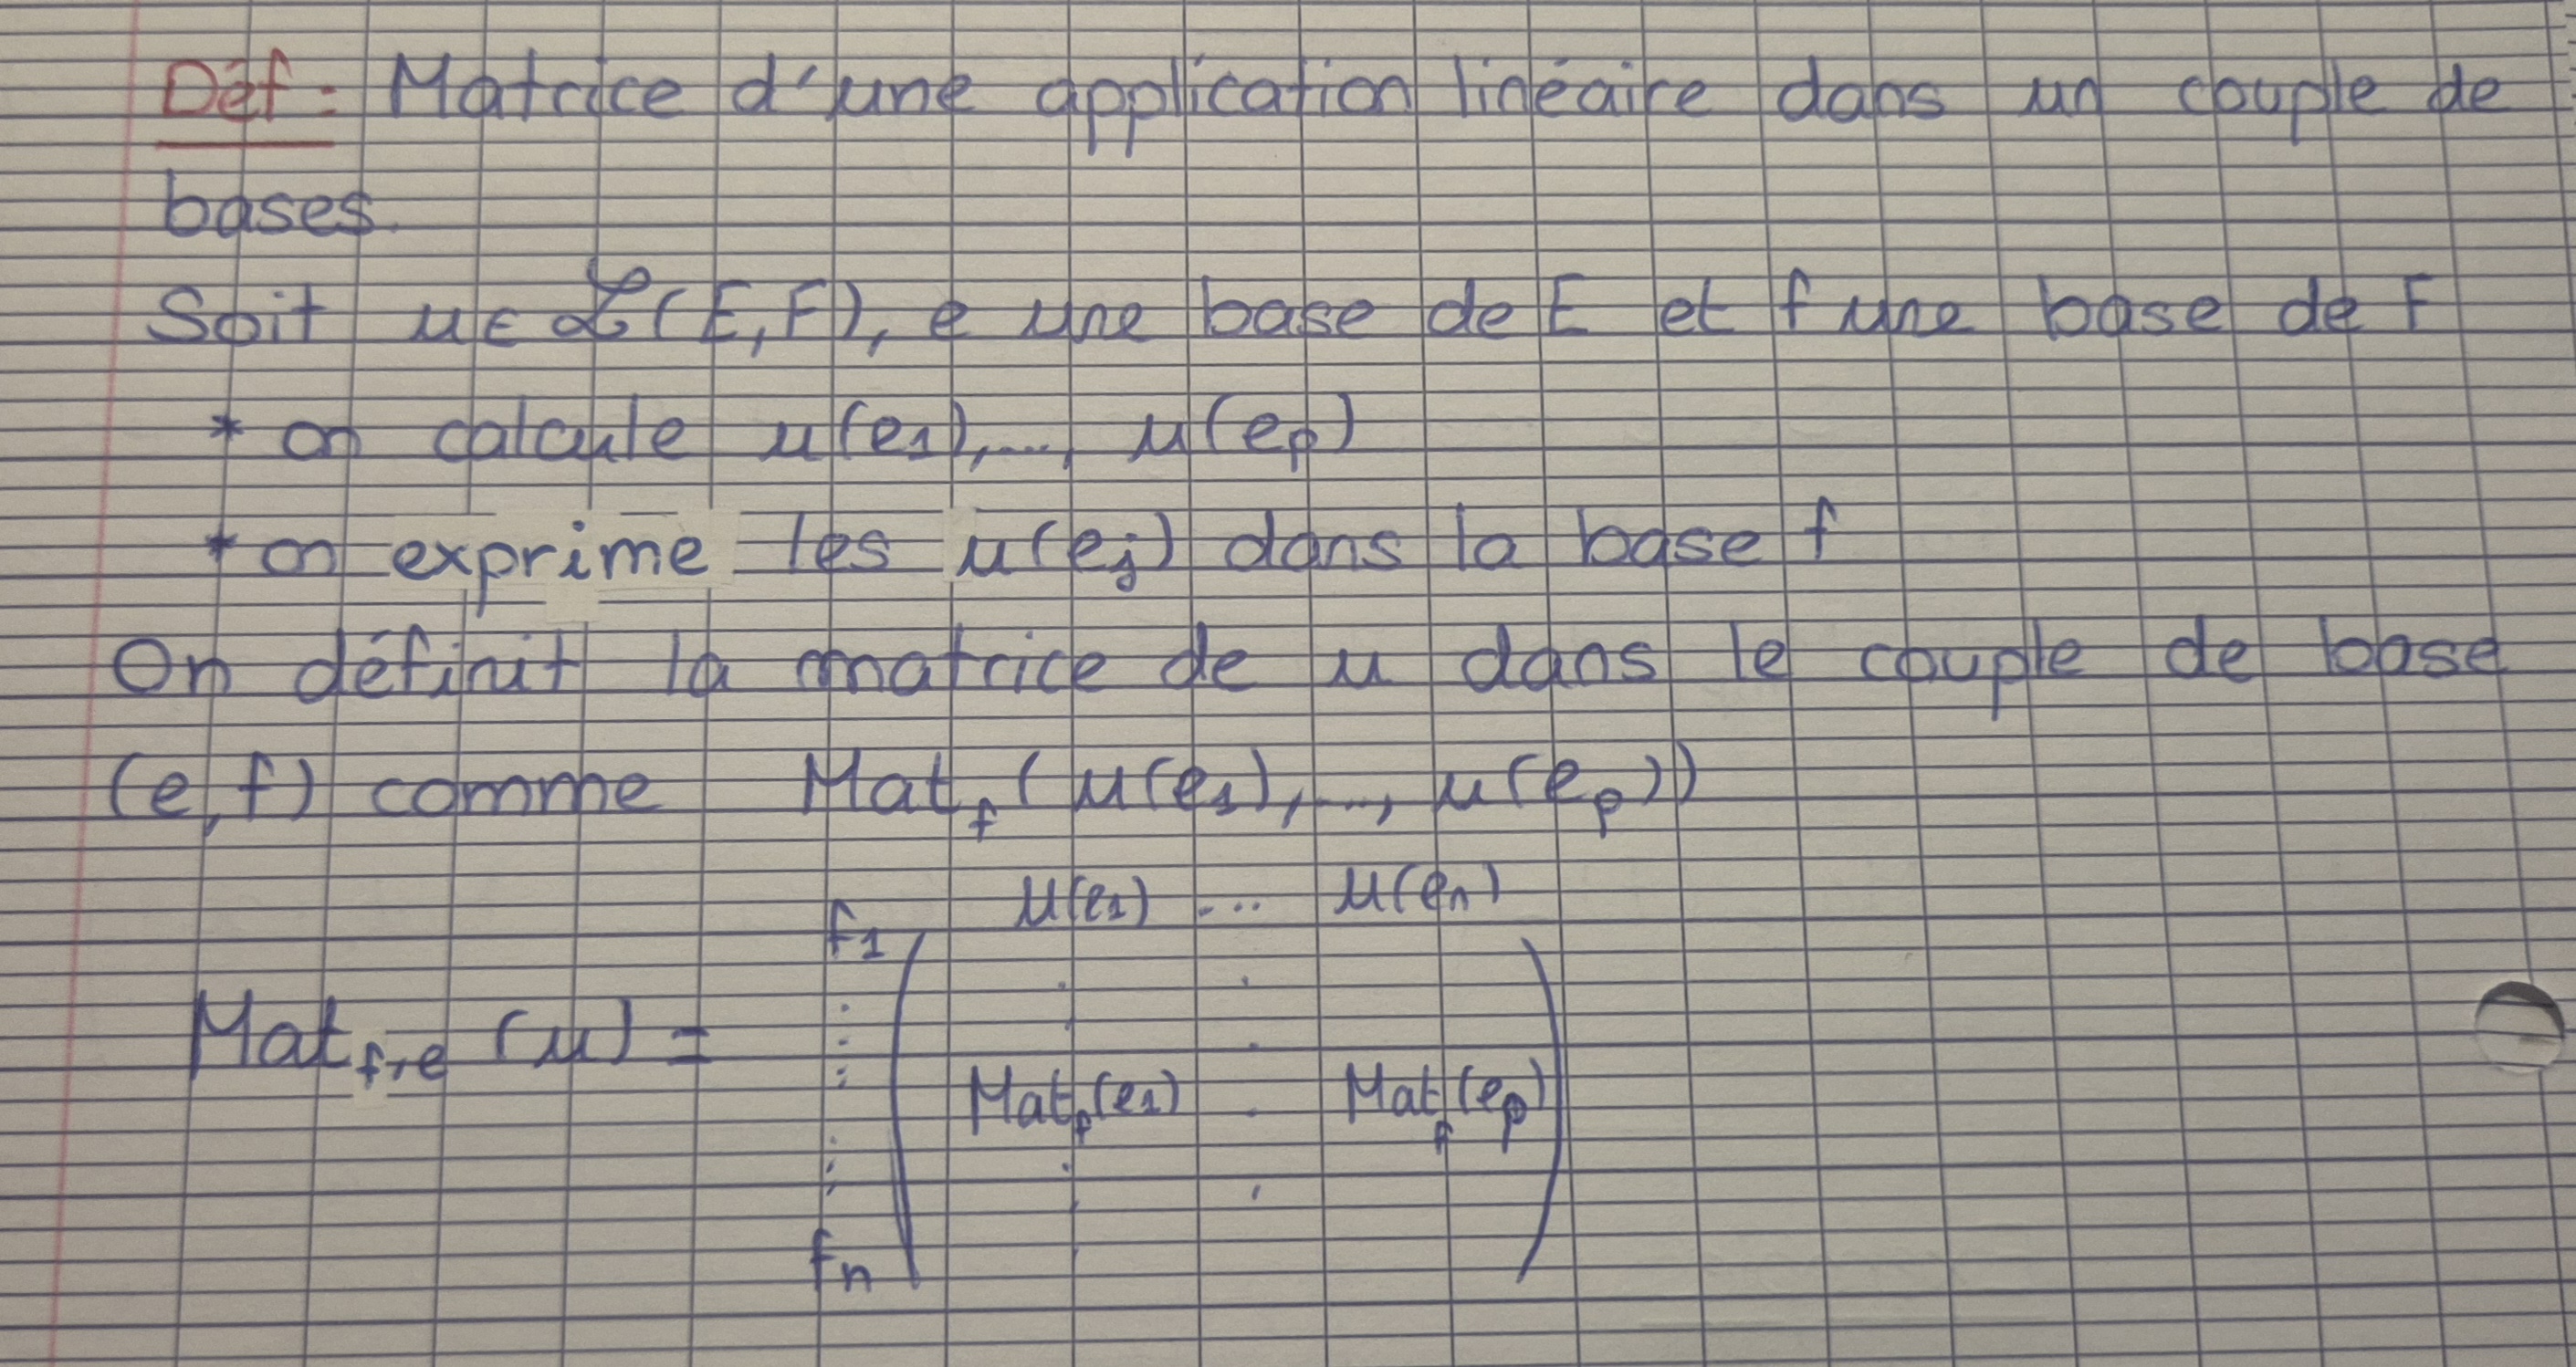 Déf: Matrice d'une application linéaire dans un couple de
bases.
Soit u ∈ ℒ(E,F), e une base de E et f une base de F
* on calcule u(e₁),..., u(eₚ)
* on exprime les u(eⱼ) dans la base f
On définit la matrice de u dans le couple de base
(e,f) comme Mat_f (u(e₁),..., u(eₚ))
u(e₁) ... u(eₙ)
f₁
Mat_{f,e} (u) =
Mat_f(e₁) Mat_f(eₚ)
fₙ